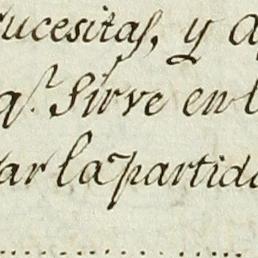 ucesitas, y a
q.ᵉ Sirve en l
ar la partida